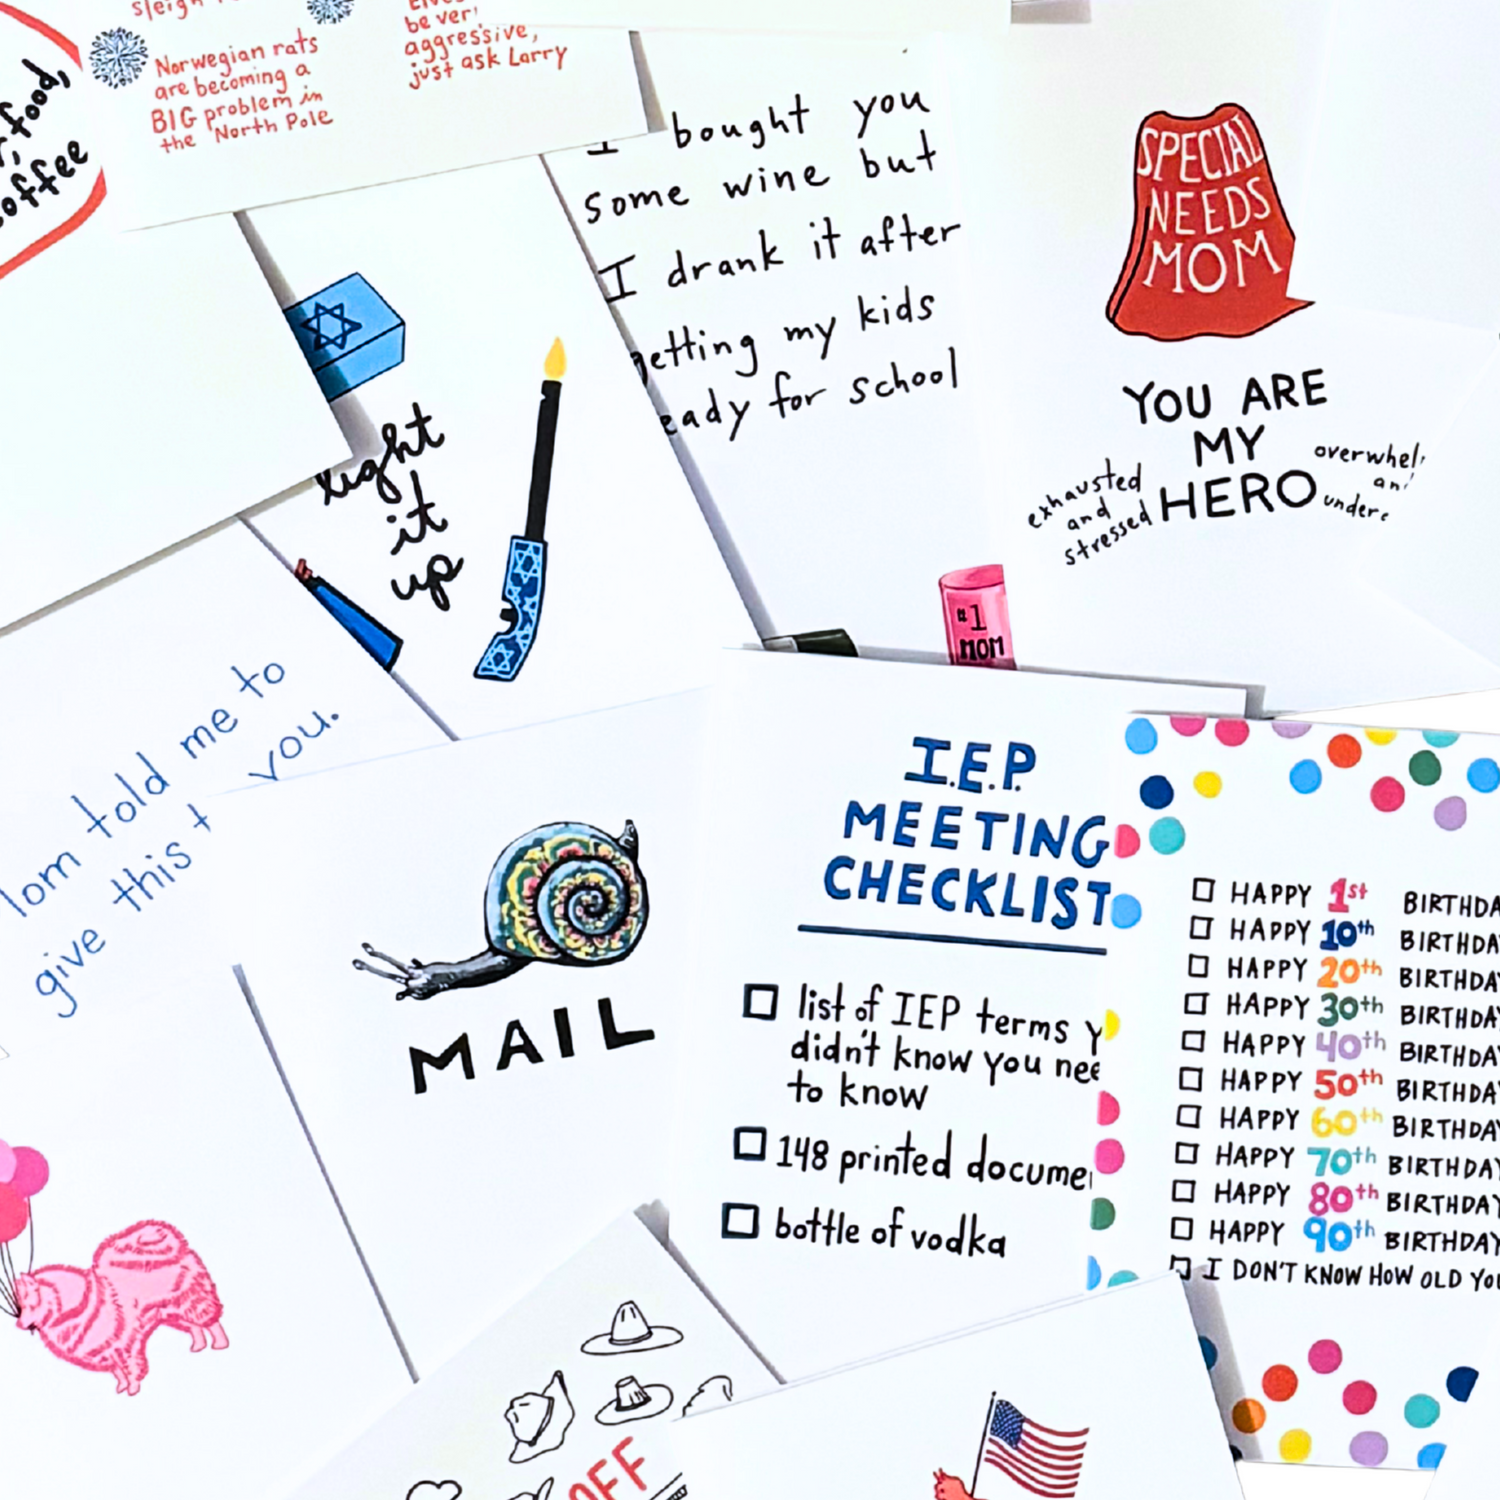 food,
coffee
Norwegian rats
are becoming a
BIG problem in
the North Pole
aggressive,
just ask Larry
I bought you
some wine but
I drank it after
getting my kids
ready for school
SPECIAL
NEEDS
MOM
YOU ARE
MY
HERO
exhausted
and
stressed
#1
MOM
light
it
up
Mom told me to
give this t you.
MAIL
I.E.P.
MEETING
CHECKLIST
list of IEP terms y
didn't know you nee
to know
148 printed docume
bottle of vodka
HAPPY 1st BIRTHDA
HAPPY 10th BIRTHDA
HAPPY 20th BIRTHDA
HAPPY 30th BIRTHDA
HAPPY 40th BIRTHDA
HAPPY 50th BIRTHDA
HAPPY 60th BIRTHDA
HAPPY 70th BIRTHDAY
HAPPY 80th BIRTHDAY
HAPPY 90th BIRTHDAY
I DON'T KNOW HOW OLD YOU
OFF